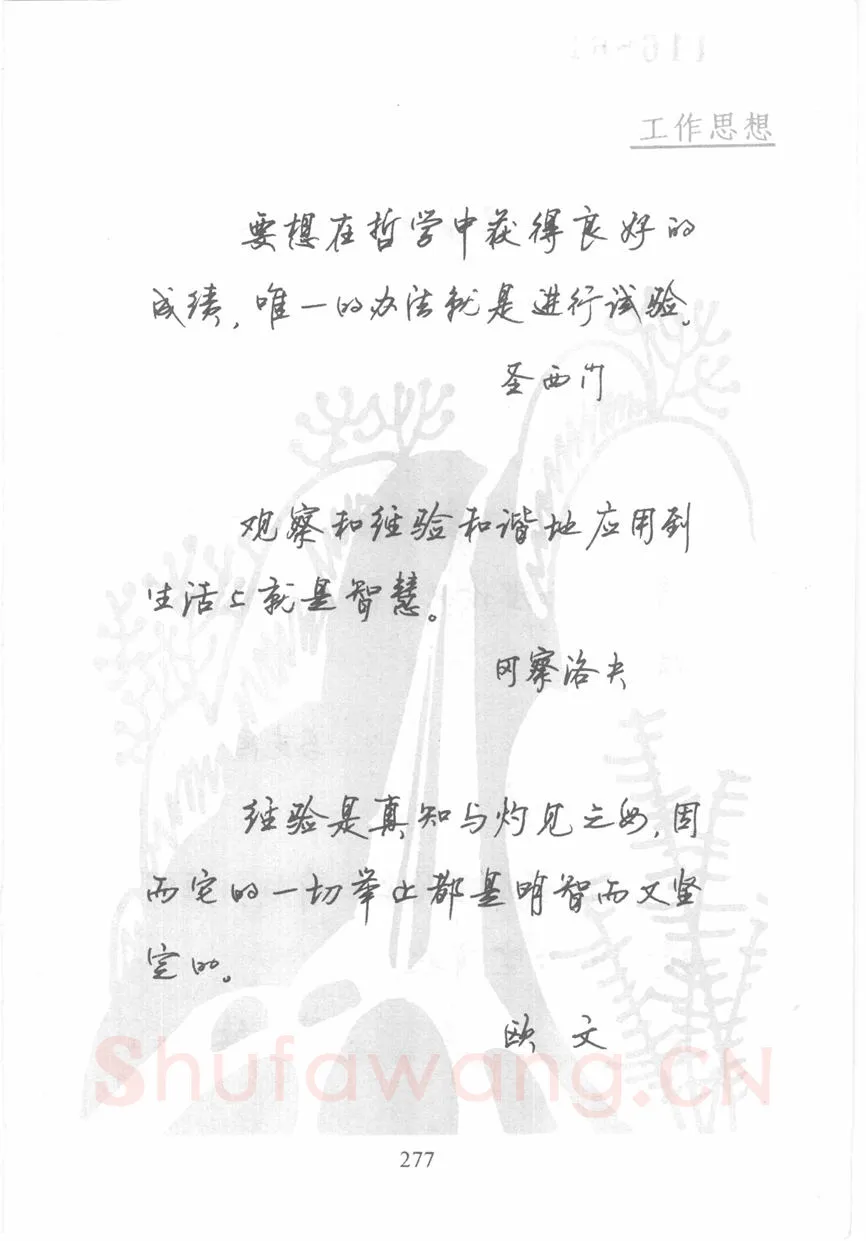 工作思想
要想在哲学中获得良好的
成绩,唯一的办法就是进行试验。
圣西门
观察和经验和谐地应用到
生活上就是智慧。
冈察洛夫
经验是真知与灼见之母,因
而它的一切举止都是明智而又坚
定的。
欧文
Shufawang.CN
277